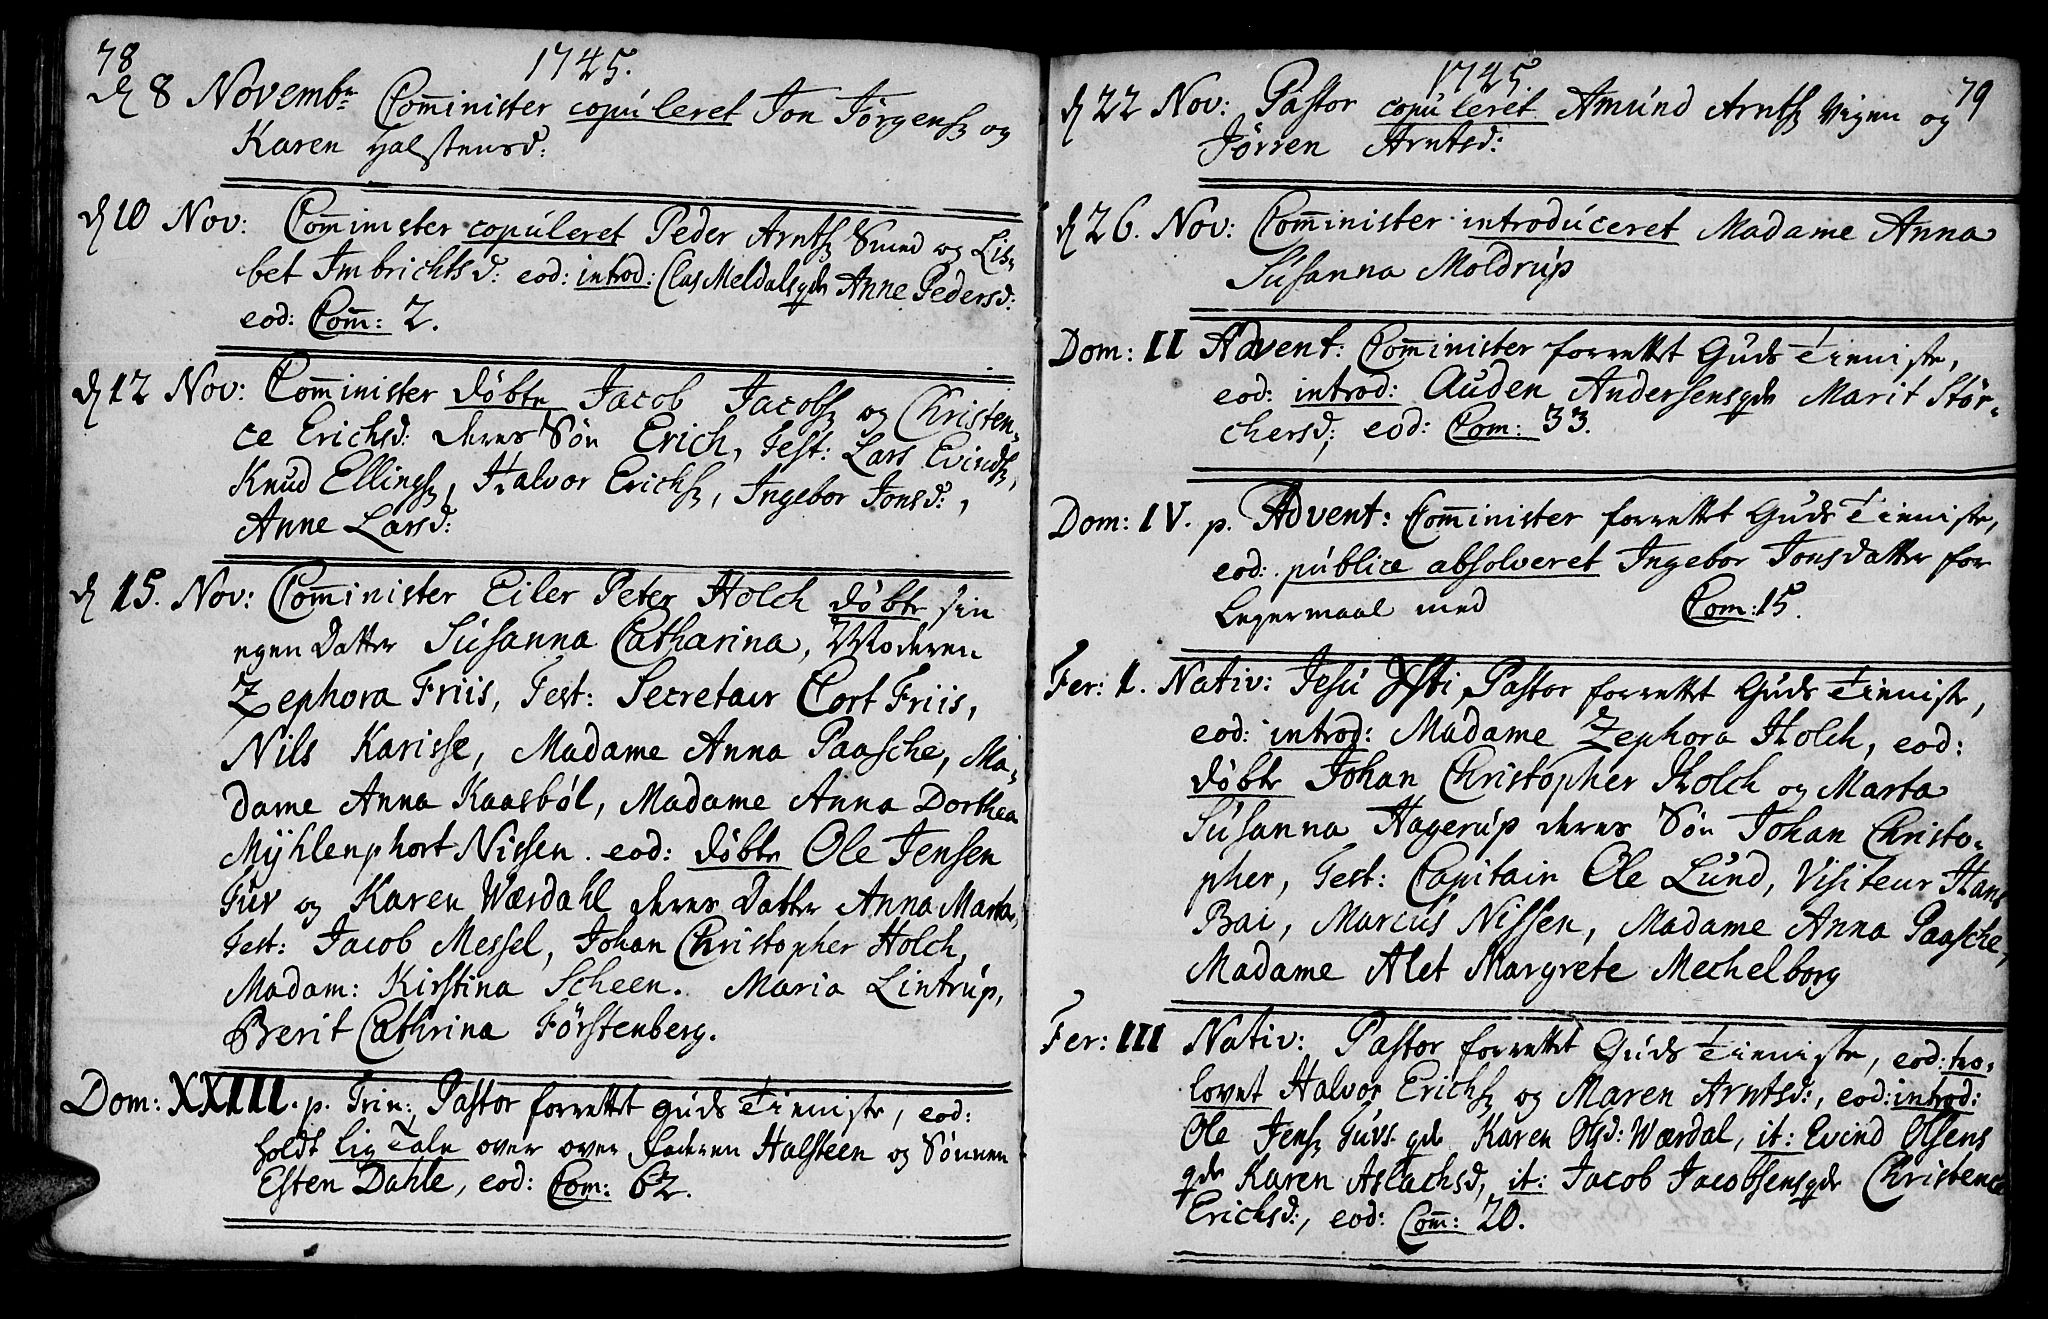 78
1745.
d 8 Novembr Com̄inister copuleret Jon Jörgens: og
Karen Halstensd:
d 10 Nov: Com̄inister copuleret Peder Arnts: Smed og Lis-
bet Imbrichtsd: eod: introd: Clas Meldals qde Anne Pedersd:
eod: Com̄: 2.
d 12 Nov: Com̄inister döbte Jacob Jacobs: og Christen-
ce Erichsd: deres Sön Erich, Test: Lars Evinds:,
Knud Ellings:, Halvor Erichs:, Ingebor Jonsd:,
Anne Larsd:
d 15. Nov: Com̄inister Eiler Peter Holch döbte sin
egen Datter Susanna Catharina, Moderen
Zephora Friis, Test: Secretair Cort Friis,
Nils Karisse, Madame Anna Paasche, Ma-
dame Anna Kaasböl, Madame Anna Dorthea
Mÿhlenphort Nissen. eod: döbte Ole Jensen
Tuv og Karen Wærdahl deres Datter Anna Marta,
Test: Jacob Messel, Johan Christopher Holch,
Madam: Kirstina Scheen. Maria Lintrup,
Berit Cathrina Förstenberg.
Dom: XXIII. p. Trin: Pastor forrettet Guds Tieniste, eod:
holdt lig Tale over over faderen Halsteen og Sönnen
Esten Dahle, eod: Com: 62.
1745.
79
d 22 Nov: Pastor copuleret Amund Arnts: Vigen og
Jörren Arntsd:
d 26. Nov: Com̄inister introduceret Madame Anna
Susanna Moldrup
Dom: II Advent: Com̄inister forrettet Guds Tieniste,
eod: introd: Auden Andersens qde Marit Stör-
chersd; eod: Com: 33.
Dom: IV. p. Advent: Com̄inister forrettet Guds Tieniste,
eod: publice absolveret Ingebor Jonsdatter for
Legermaal med Com: 15.
Fer: I. Nativ: Jesu Xsti, Pastor forrettet Guds Tieniste,
eod: introd: Madame Zephora Holch, eod:
döbte Johan Christopher Holch og Marta
Susanna Hagerup deres Sön Johan Christo-
pher, Test: Capitain Ole Lund, Visiteur Hans
Bai, Marcus Nissen, Madame Anna Paasche,
Madame Alet Margrete Mechelborg
Fer: III Nativ: Pastor forrettet Guds Tieniste, eod: tro-
lovet Halvor Erichs: og Maren Arntsd:, eod: introd:
Ole Jens: Tuvs qde Karen Olsd: Wærdal, it: Evind Olsens
qde Karen Aslachsd, it: Jacob Jacobsens qde Christence
Erichsd:, eod: Com̄: 20.